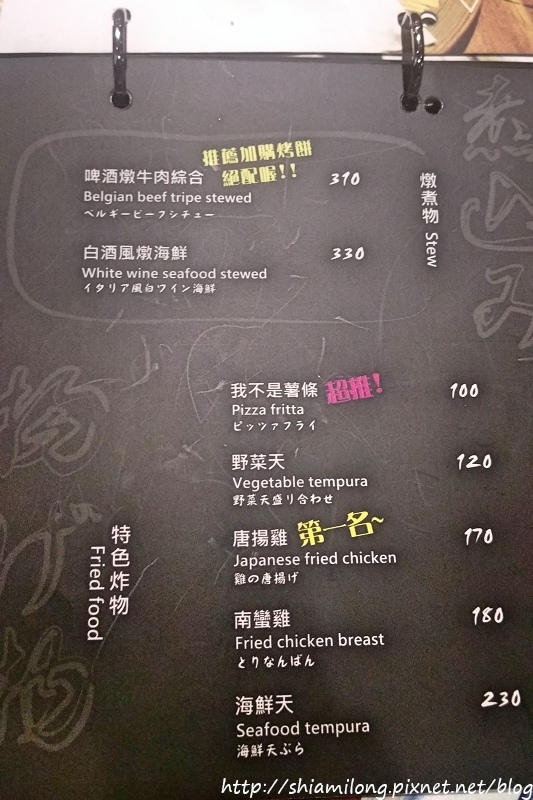 推薦加購烤餅
絕配喔!!
啤酒燉牛肉綜合 310
Belgian beef tripe stewed
ベルギービーフシチュー
白酒風燉海鮮 330
White wine seafood stewed
イタリア風白ワイン海鮮
燉煮物 Stew
我不是薯條 超推! 100
Pizza fritta
ピッツァフライ
野菜天 120
Vegetable tempura
野菜天盛り合わせ
唐揚雞 第一名~ 170
Japanese fried chicken
雞の唐揚げ
南蠻雞 180
Fried chicken breast
とりなんばん
海鮮天 230
Seafood tempura
海鮮天ぷら
特色炸物
Fried food
http://shiamilong.pixnet.net/blog